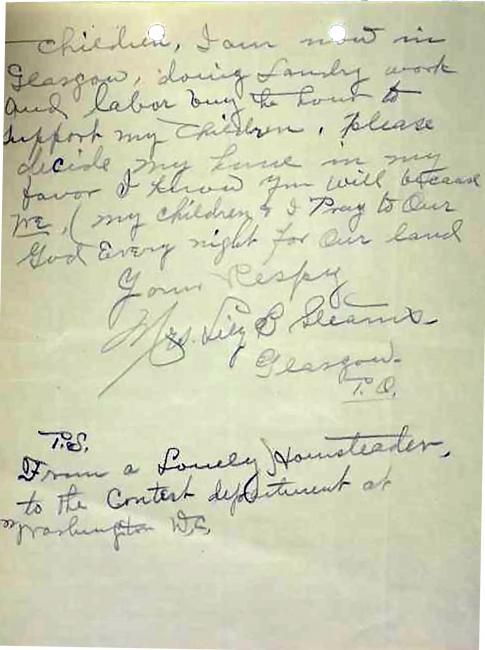 children, I am now in
Glasgow, doing Landry work
and labor buy the hour to
support my children, please
decide my in my
favor I know you will because
we, (my children & I Pray to Our
God Every night for Our land
Yours Respy
Mrs. Lily B Stearns
Glasgow.
P.O.
P.S.
From a Lonely Homsteader,
to the Contest department at
Washington D.C,